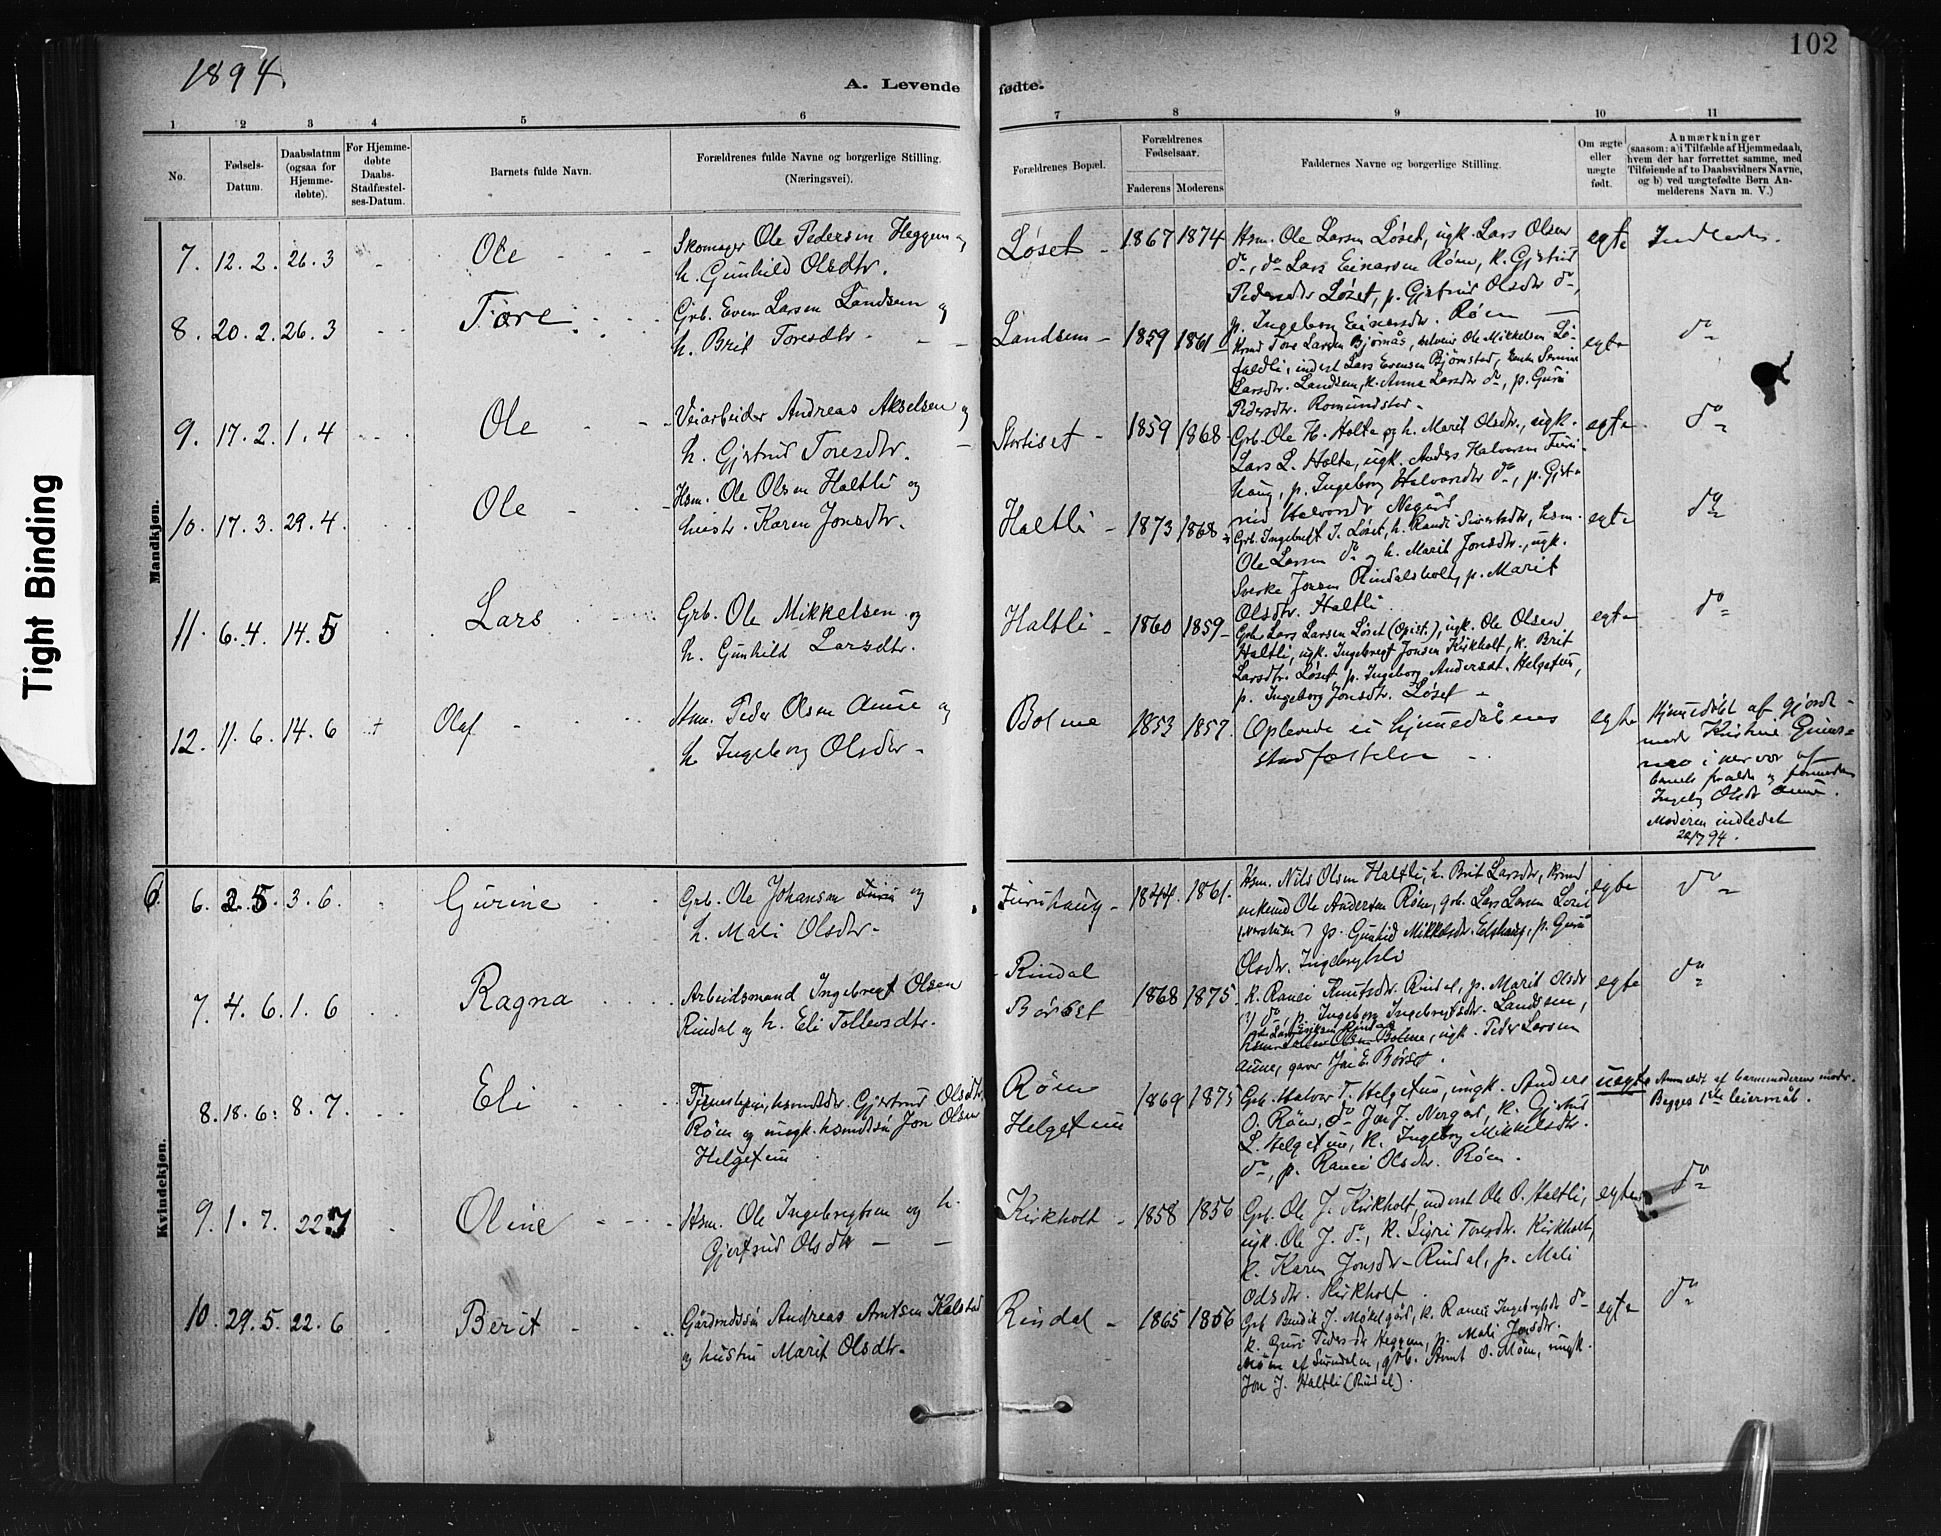 1894.
102
A. Levende fødte.
1 2 3 4 5 6 7 8 9 10 11
No.
Fødsels-
Datum.
Daabsdatum
(ogsaa for
Hjemme-
døbte).
For Hjemme-
døbte
Daabs-
Stadfæstel-
ses-Datum.
Barnets fulde Navn.
Forældrenes fulde Navne og borgerlige Stilling.
(Næringsvei).
Forældrenes Bopæl.
Forældrenes
Fødselsaar.
Faderens Moderens
Faddernes Navne og borgerlige Stilling.
Om ægte
eller
uægte
født.
Anmærkninger
(saasom: a) i Tilfælde af Hjemmedaab,
hvem der har forrettet samme, med
Tilføiende af to Daabsvidners Navne,
og b) ved uægtefødte Børn An-
melderens Navn m. V.)
Tight Binding
Mandkjøn.
7. 12.2. 26.3 Ole
Skomager Ole Pedersen Heggem og
h. Gunhild Olsdtr.
Løset 1867 1874
Hsm. Ole Larsen Løset, ugk. Lars Olsen
do, do Lars Einarsen Røen, k. Gjertrud
Pedersdtr Løset, p. Gjertrud Olsdtr do,
p. Ingeborg Einarsdtr. Røen
egte
8. 20.2. 26.3 Tore
Grb. Even Larsen Landsem og
h. Brit Toresdtr
Landsem 1859 1861
Tore Larsen Bjørnås, Ole Mikkelsen Lø-
faldli, inderst Lars Evensen Bjørnstad,
Larsdtr. Landsem, k. Anna Larsdtr do, p. Guri
Pedersdtr. Romundstad
egte do
9. 17.2. 1.4 Ole
Veiarbeider Andreas Akselsen og
h. Gjertrud Toresdtr.
1859 1868
Grb. Ole H. Holte og h. Marit Olsdtr, ugk.
Lars L. Holte, ugk. Anders Halvorsen Furu-
haug, p. Ingeborg Halvorsdtr do, p. Gjert-
rud Halvorsdtr
egte do
10. 17.3. 29.4. Ole
Hsm. Ole Olsen Haltli og
hustr. Karen Jonsdtr.
Haltli 1873 1868
Grb. Ingebrigt J. Løset, h. Randi Sivertsdtr, hsm.
Ole Larsen do og h. Marit Jonsdtr., ugk.
Sverke Jonsen Rindalsholt, p. Marit
Olsdtr. Haltli.
egte do
11. 6.4. 14.5 Lars
Grb. Ole Mikkelsen og
h. Gunhild Larsdtr.
Haltli 1860 1859
Grb. Lars Larsen Løset (Opist.), ugk. Ole Olsen
Haltli, ugk. Ingebrigt Jonsen Kirkholt, k. Brit
Larsdtr. Løset, p. Ingeborg Andersdt. Helgetun,
p. Ingeborg Jonsdtr. Løset
egte do
12. 11.6. 14.6 + Olaf
Hsm. Peder Olsen Aune og
h. Ingeborg Olsdtr
Bolme 1853 1857
Oplevede ei hjemmedåbens
stadfæstelse
egte
Hjemmedøbt af
Kristine
i nærvær af
Ingeborg Olsdtr Aune.
Moderen indledet
22/7 94.
Kvindekjøn.
6
6. 25. 3.6. Gurine
Grb. Ole Johansen og
h. Mali Olsdtr
Furuhaug 1844 1861
Hsm. Nils Olsen Haltli, h. Brit Larsdtr,
enkemd Ole Andersen Røen, grb. Lars Larsen Løset
p. Gunhild Mikkelsdtr. Elshaug, p. Guru
Olsdtr. Ingebrigtsli
egte do
7. 4.6. 1.6 Ragna
Arbeidsmand Ingebrigt Olsen
Rindal og h. Eli Tollevsdtr.
Rindal
Børset 1868 1875
k. Ranei Knutsdtr. Rindal, p. Marit Olsdtr
do, p. Ingeborg Ingebrigtsdtr. Landsem,
Olsen Bolme, ugk. Peder Larsen
Aune, gaver Jon E. Børset.
egte do
8. 18.6. 8.7. Eli
Tjenestepi. hsmdsdtr. Gjertrud Olsdtr
Røen og ungk. hsmdssøn Jon Olsen
Helgetun
Røen
Helgetun 1869 1875
Grb. Halvor T. Helgetun, ungk. Anders
O. Røen, do Jon J. Nergard, k. Gjertrud
L. Helgetun, k. Ingeborg Mikkelsdtr.
do, p. Ranei Olsdtr. Røen.
uegte
Anmeldt af barnemoderens moder.
Begges 1ste leiermål.
9. 1.7. 22.7 Oline
Hsm. Ole Ingebrigtsen og h.
Gjertrud Olsdtr
Kirkholt 1858 1856
Grb. Ole J. Kirkholt, inderst Ole O. Haltli,
ugk. Ole J. do, k. Sigri Toresdtr. Kirkholt,
k. Karen Jonsdtr Rindal, p. Mali
Olsdtr. Kirkholt
egte do
10. 29.5. 22.6 Berit
Gårdmdssøn Andreas Arntsen Kalstad
og hustru Marit Olsdtr.
Rindal 1865 1856
Grb. Bendik J. Møkelgård, k. Ranei Ingebrigtsdtr do
k. Guri Pedersdtr Heggem, p. Mali Jonsdtr.
Møen af Surndalen, grb. Arnt O. Møen, ungk.
Jon J. Haltli (Rindal).
egte do